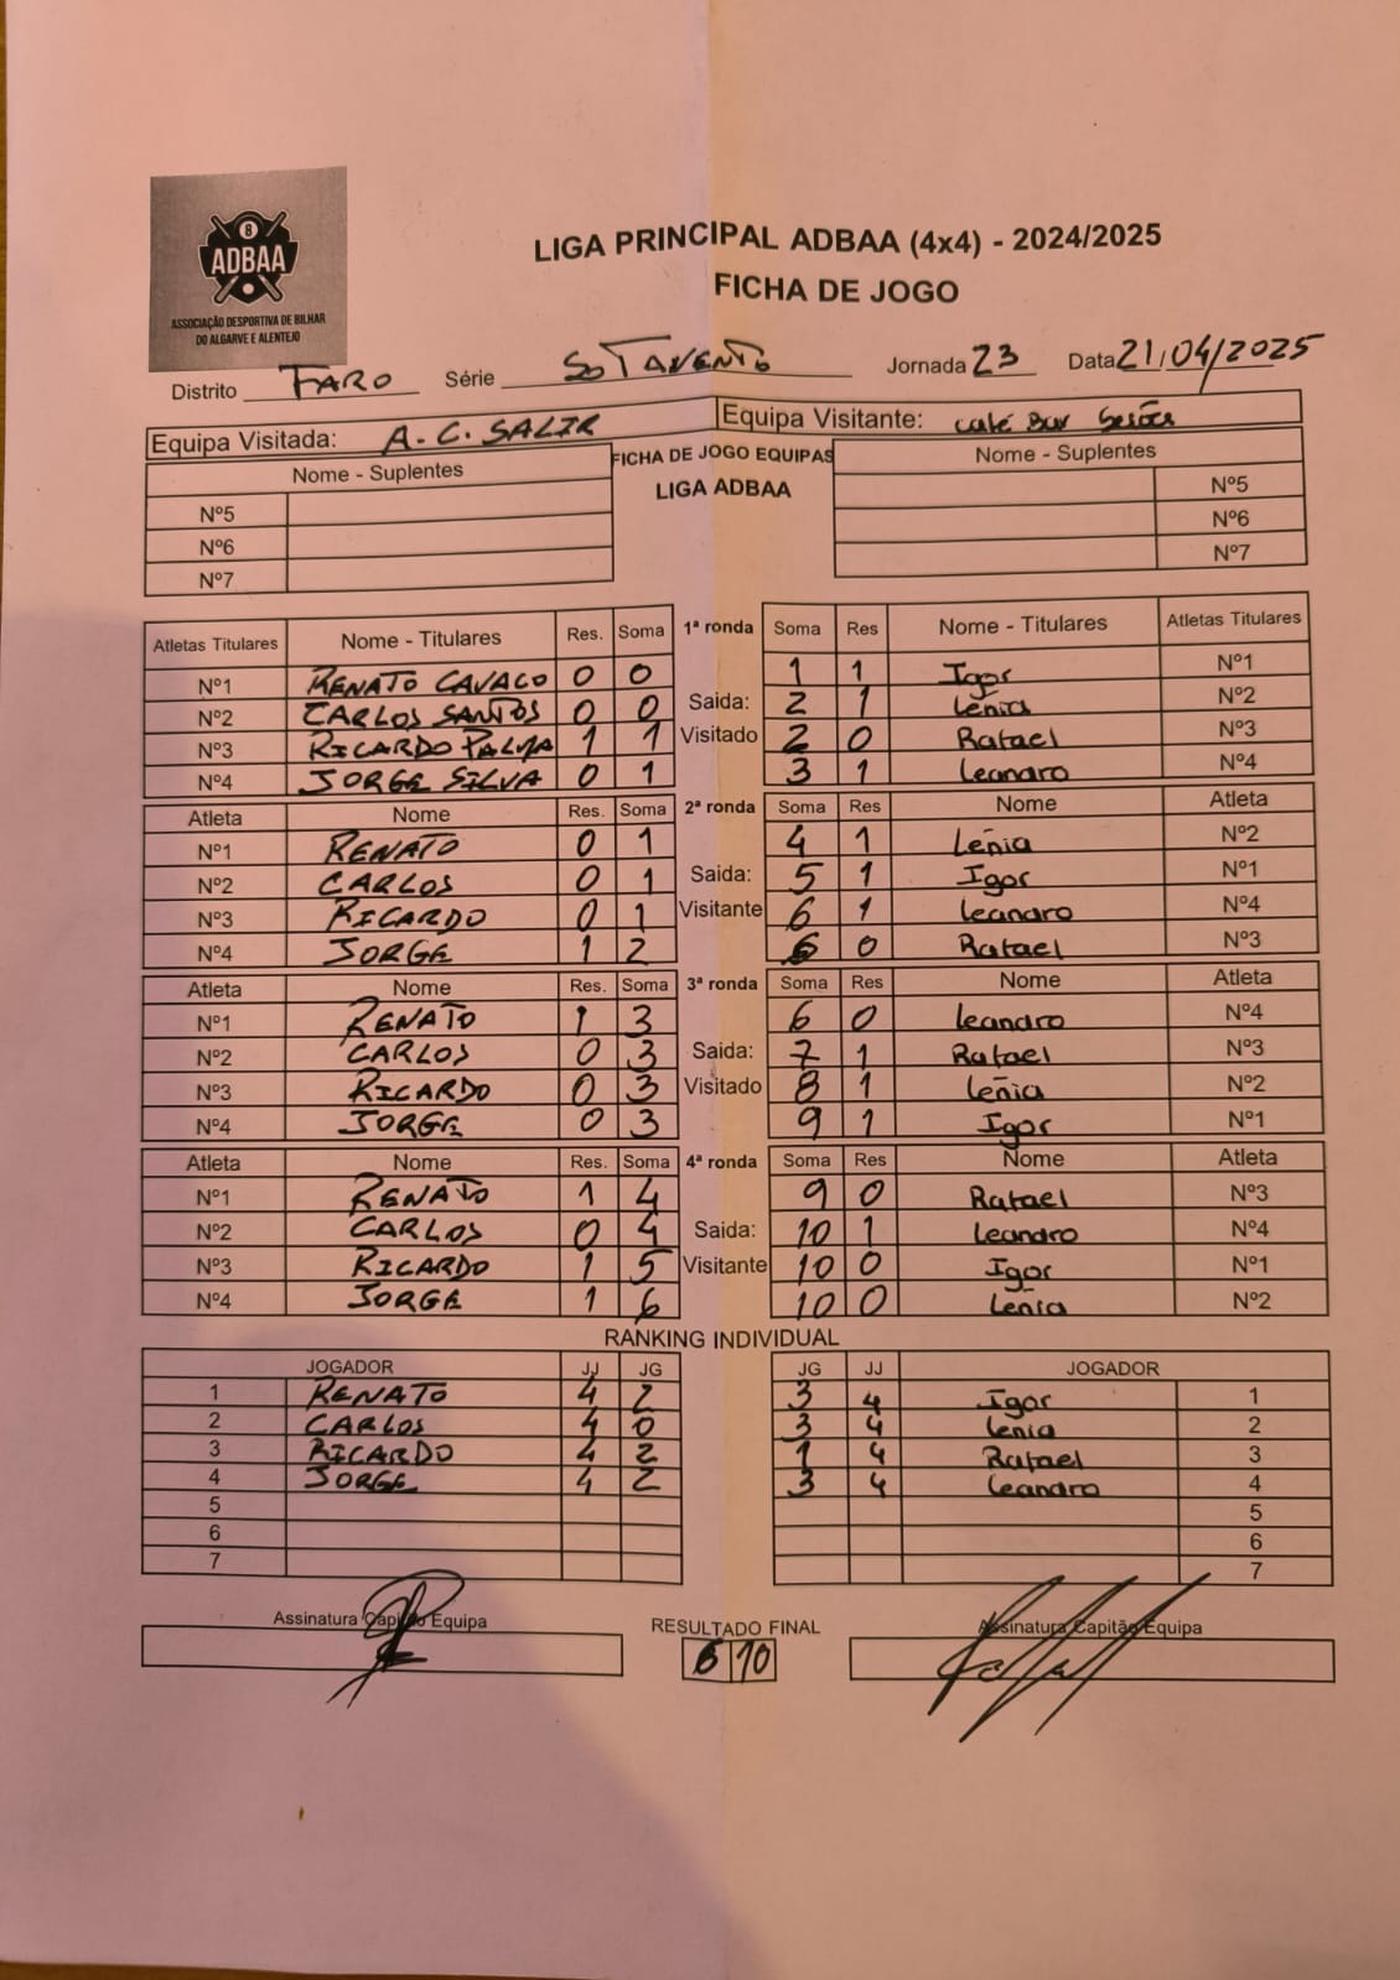 8
ADBAA
ASSOCIAÇÃO DESPORTIVA DE BILHAR
DO ALGARVE E ALENTEJO
LIGA PRINCIPAL ADBAA (4x4) - 2024/2025
FICHA DE JOGO
Distrito FARO Série SOTAVENTO Jornada 23 Data 21/04/2025
Equipa Visitada: A.C. SALIR Equipa Visitante: Café Bar
Nome - Suplentes FICHA DE JOGO EQUIPAS Nome - Suplentes
LIGA ADBAA
Nº5 Nº5
Nº6 Nº6
Nº7 Nº7
Atletas Titulares Nome - Titulares Res. Soma 1ª ronda Soma Res Nome - Titulares Atletas Titulares
Nº1 RENATO CAVACO 0 0 1 1 Igor Nº1
Nº2 CARLOS SANTOS 0 0 Saida: 2 1 Lénia Nº2
Nº3 RICARDO PALMA 1 1 Visitado 2 0 Rafael Nº3
Nº4 JORGE SILVA 0 1 3 1 Leandro Nº4
Atleta Nome Res. Soma 2ª ronda Soma Res Nome Atleta
Nº1 RENATO 0 1 4 1 Lénia Nº2
Nº2 CARLOS 0 1 Saida: 5 1 Igor Nº1
Nº3 RICARDO 0 1 Visitante 6 1 Leandro Nº4
Nº4 JORGE 1 2 6 0 Rafael Nº3
Atleta Nome Res. Soma 3ª ronda Soma Res Nome Atleta
Nº1 RENATO 1 3 6 0 Leandro Nº4
Nº2 CARLOS 0 3 Saida: 7 1 Rafael Nº3
Nº3 RICARDO 0 3 Visitado 8 1 Lénia Nº2
Nº4 JORGE 0 3 9 1 Igor Nº1
Atleta Nome Res. Soma 4ª ronda Soma Res Nome Atleta
Nº1 RENATO 1 4 9 0 Rafael Nº3
Nº2 CARLOS 0 4 Saida: 10 1 Leandro Nº4
Nº3 RICARDO 1 5 Visitante 10 0 Igor Nº1
Nº4 JORGE 1 6 10 0 Lénia Nº2
RANKING INDIVIDUAL
JOGADOR JJ JG JG JJ JOGADOR
1 RENATO 4 2 3 4 Igor 1
2 CARLOS 4 0 3 4 Lénia 2
3 RICARDO 4 2 1 4 Rafael 3
4 JORGE 4 2 3 4 Leandro 4
5 5
6 6
7 7
Assinatura Capitão Equipa RESULTADO FINAL Assinatura Capitão Equipa
6 10